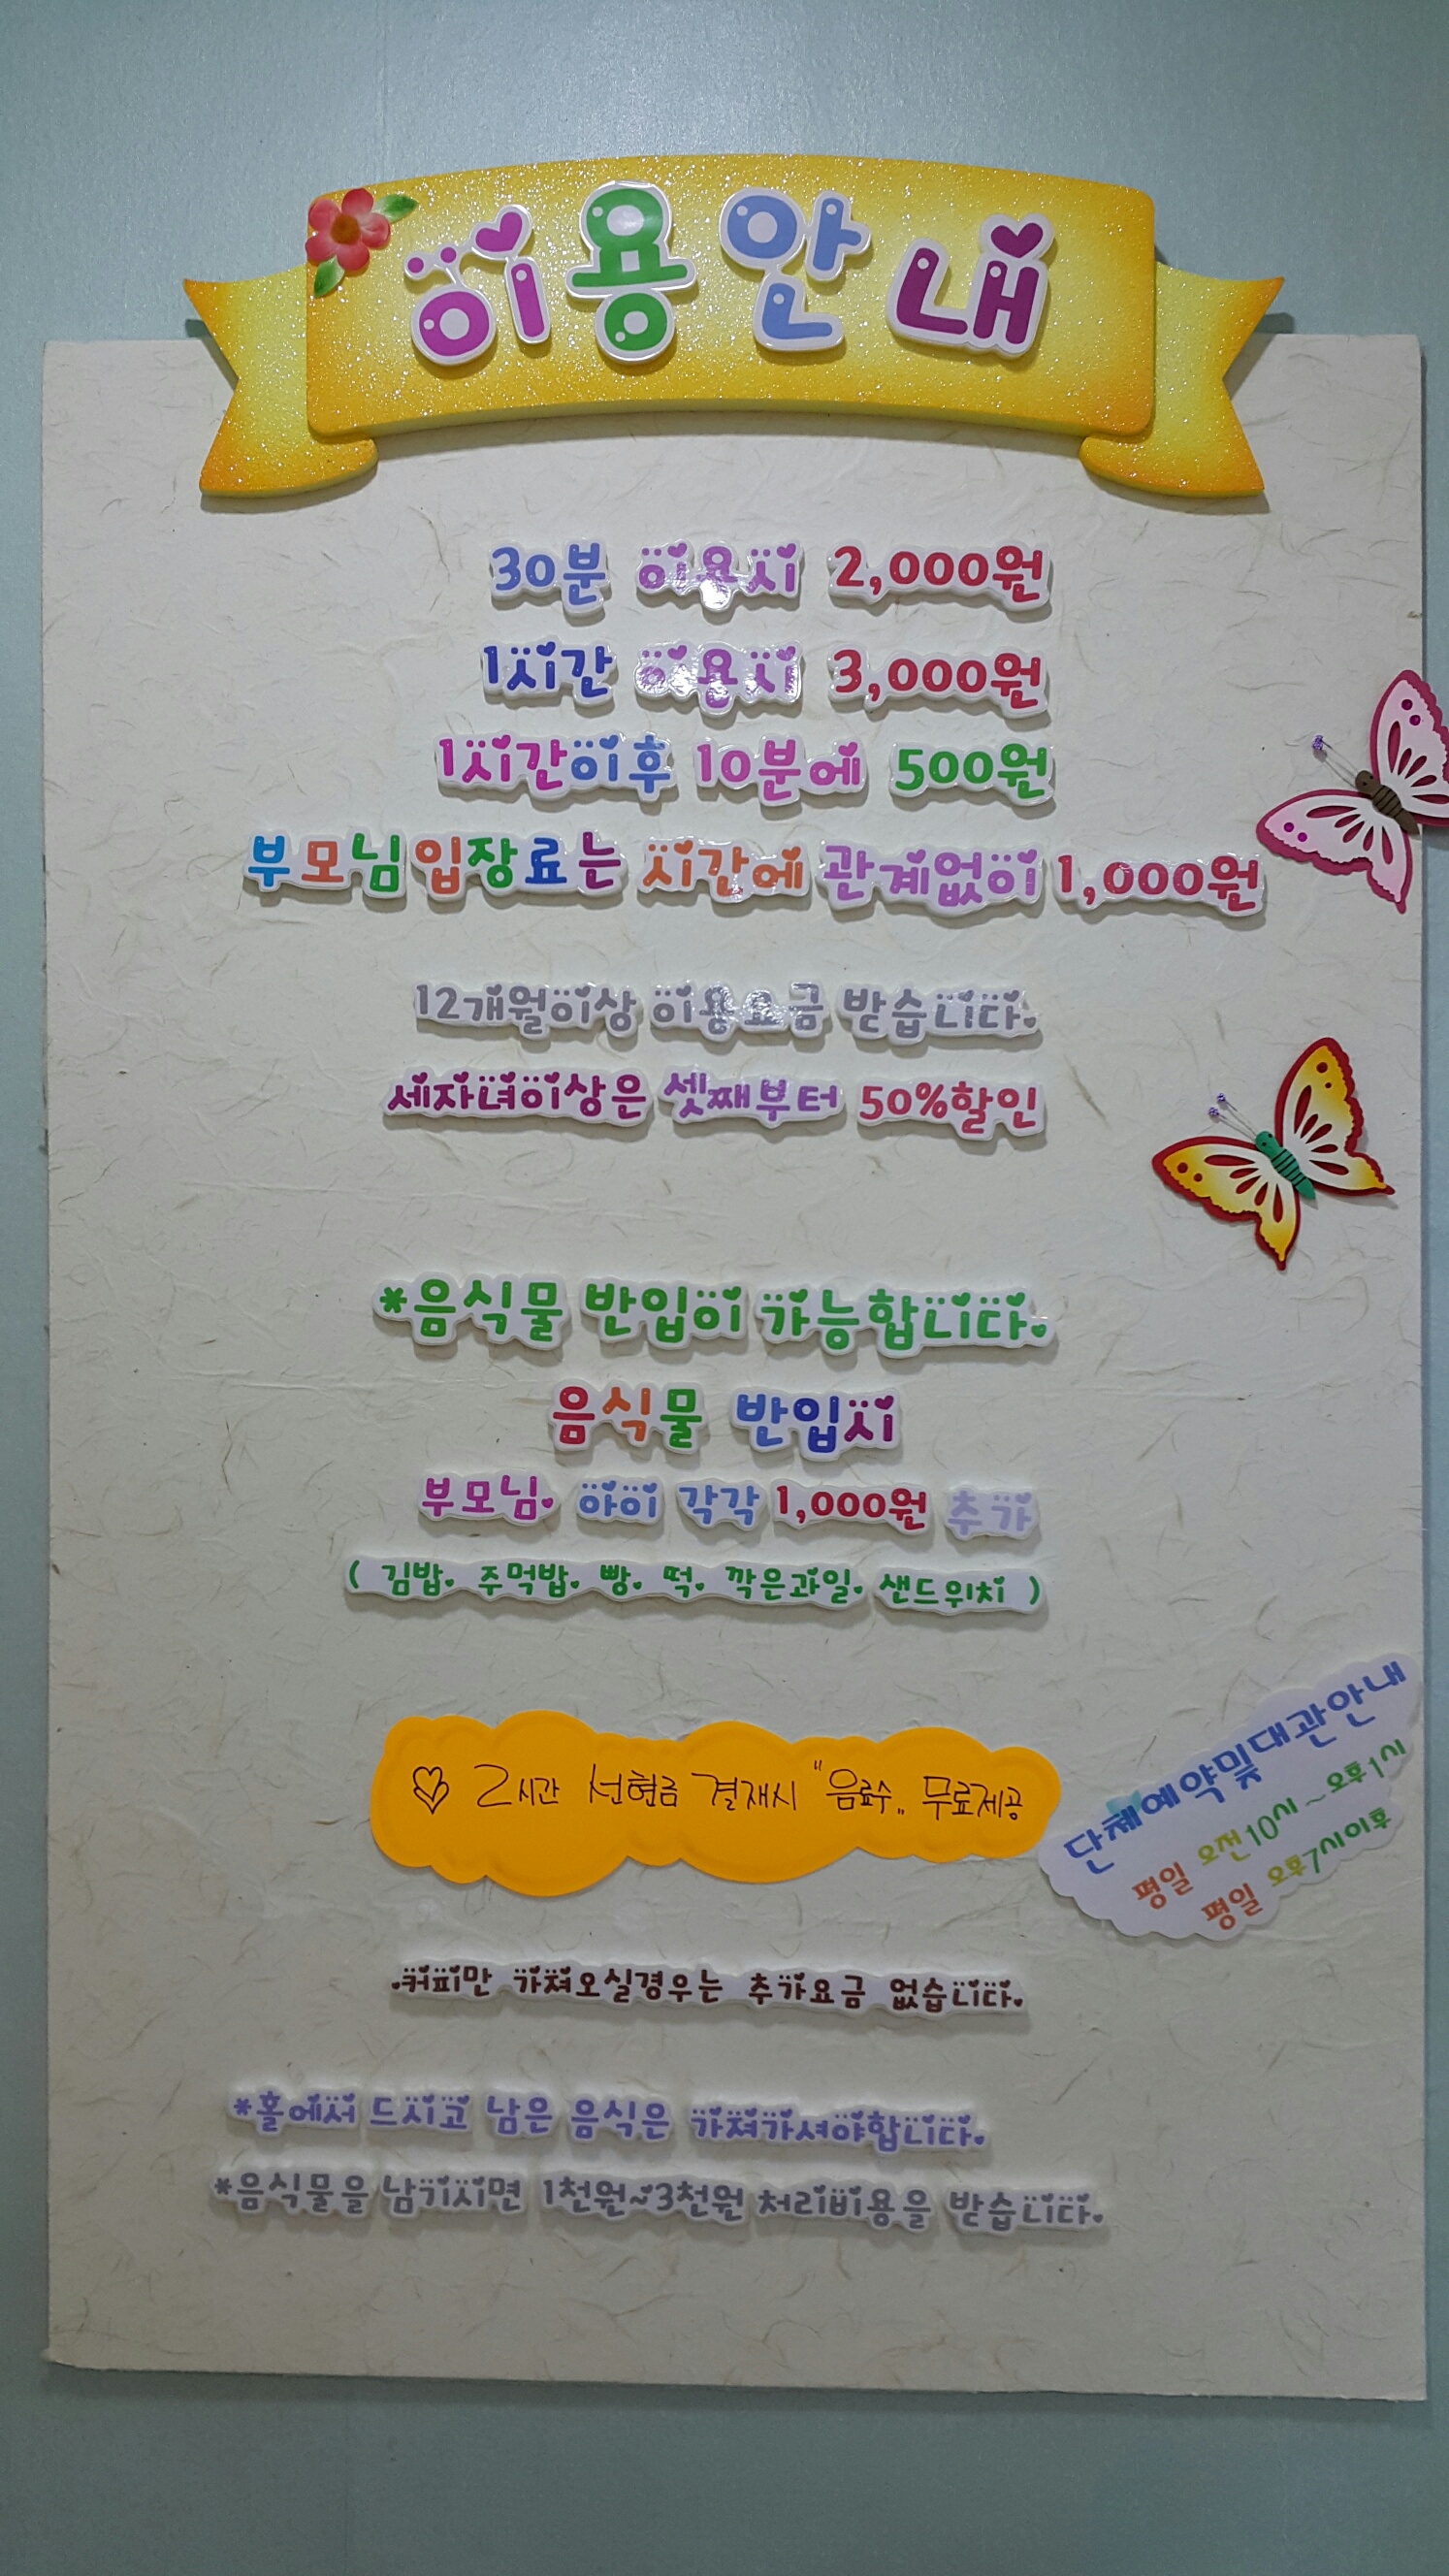 이용안내
30분 이용시 2,000원
1시간 이용시 3,000원
1시간이후 10분에 500원
부모님입장료는 시간에 관계없이 1,000원
12개월이상 이용요금 받습니다.
세자녀이상은 셋째부터 50%할인
*음식물 반입이 가능합니다.
음식물 반입시
부모님. 아이 각각 1,000원 추가
( 김밥. 주먹밥. 빵. 떡. 깍은과일. 샌드위치 )
♡ 2시간 선현금 결재시 "음료수" 무료제공
단체예약및대관안내
평일 오전10시~오후1시
평일 오후7시이후
.커피만 가져오실경우는 추가요금 없습니다.
*홀에서 드시고 남은 음식은 가져가셔야합니다.
*음식물을 남기시면 1천원~3천원 처리비용을 받습니다.